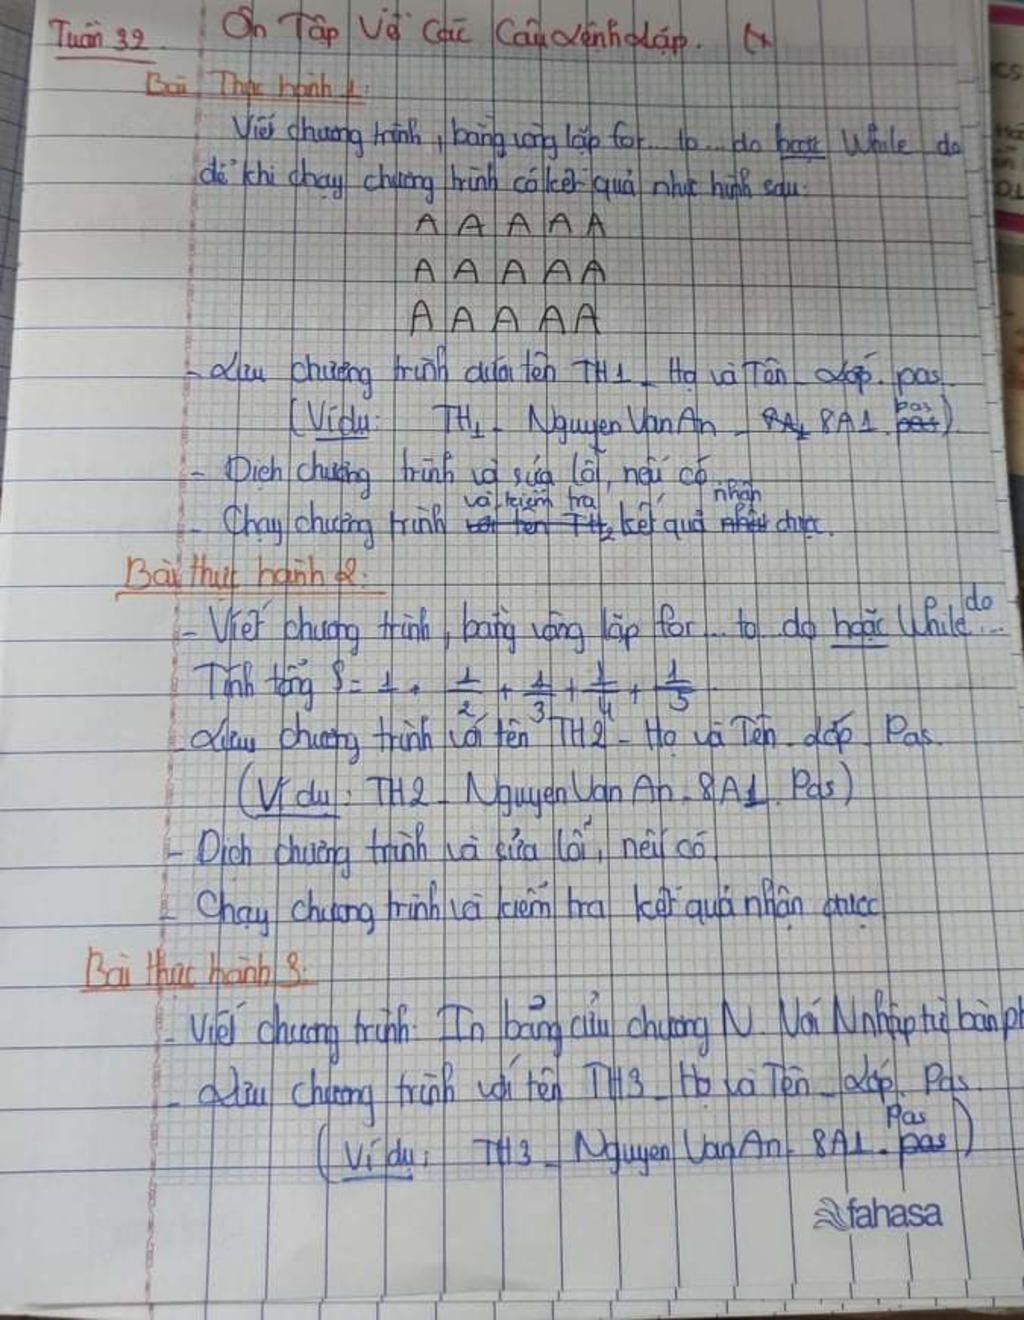 Tuần 32. Ôn Tập Về Các Câu Lệnh Lặp. (t
Bài Thực hành 1:
Viết chương trình, bằng vòng lặp for... to... do hoặc While do
để khi chạy chương trình có kết quả như hình sau:
A A A A A
A A A A A
A A A A A
- Lưu chương trình dưới tên TH1_ Họ và Tên_ Lớp. pas
(Ví dụ: TH1_ Nguyen Van An_ 8A1 8A1. pas pas)
- Dịch chương trình và sửa lỗi, nếu có
- Chạy chương trình và kiểm tra kết quả nhận được.
Bài thực hành 2:
- Viết chương trình, bằng vòng lặp for... to do hoặc While do...
Tính tổng S= 1 + 1/2 + 1/3 + 1/4 + 1/5
Lưu chương trình với tên TH2 - Họ và Tên - Lớp Pas.
(Ví dụ: TH2_ Nguyen Van An_ 8A1. Pas)
- Dịch chương trình và sửa lỗi, nếu có
- Chạy chương trình và kiểm tra kết quả nhận được
Bài thực hành 3:
- Viết chương trình: In bảng cửu chương N. Với N nhập từ bàn ph
- Lưu chương trình với tên TH3_ Họ và Tên_ Lớp. Pas.
(Ví dụ: TH3_ Nguyen Van An_ 8A1. pas Pas)
fahasa